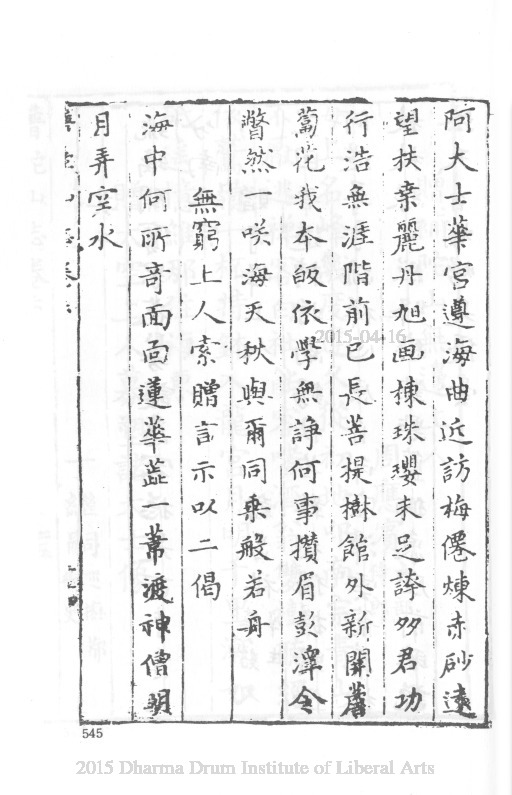 阿大士華宮遵海曲近訪梅僊煉赤砂遠
望扶桒麗丹旭画棟珠瓔未足誇多君功
行浩無涯階前已長菩提樹館外新開薝
蔔花我本皈依學無諍何事攢眉彭澤令
瞥然一咲海天秋與爾同乗般若舟
無窮上人索贈言示以二偈
海中何所竒面面蓮華蕋一葦渡神僧明
月弄空水
2015-04-16
545
2015 Dharma Drum Institute of Liberal Arts